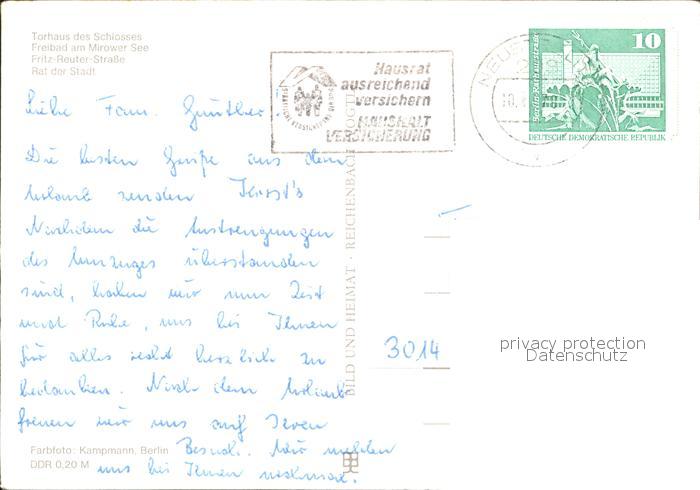 Torhaus des Schlosses
Freibad am Mirower See
Fritz-Reuter-Straße
Rat der Stadt
Hausrat
ausreichend
versichern
HAUSHALT
VERSICHERUNG
NEUST
10
Berlin-Rathausstraße
DEUTSCHE DEMOKRATISCHE REPUBLIK
Liebe Fam. Günther!
Die besten Grüße aus dem
Urlaub senden
Nachdem die Anstrengungen
des Umzuges überstanden
sind, haben wir nun Zeit
und Ruhe, uns bei Ihnen
für alles recht herzlich zu
bedanken. Nach dem Urlaub
freuen wir uns auf Ihren
Besuch. Wir melden
uns bei Ihnen nochmal.
BILD UND HEIMAT · REICHENBACH
3014
privacy protection
Datenschutz
Farbfoto: Kampmann, Berlin
DDR 0,20 M